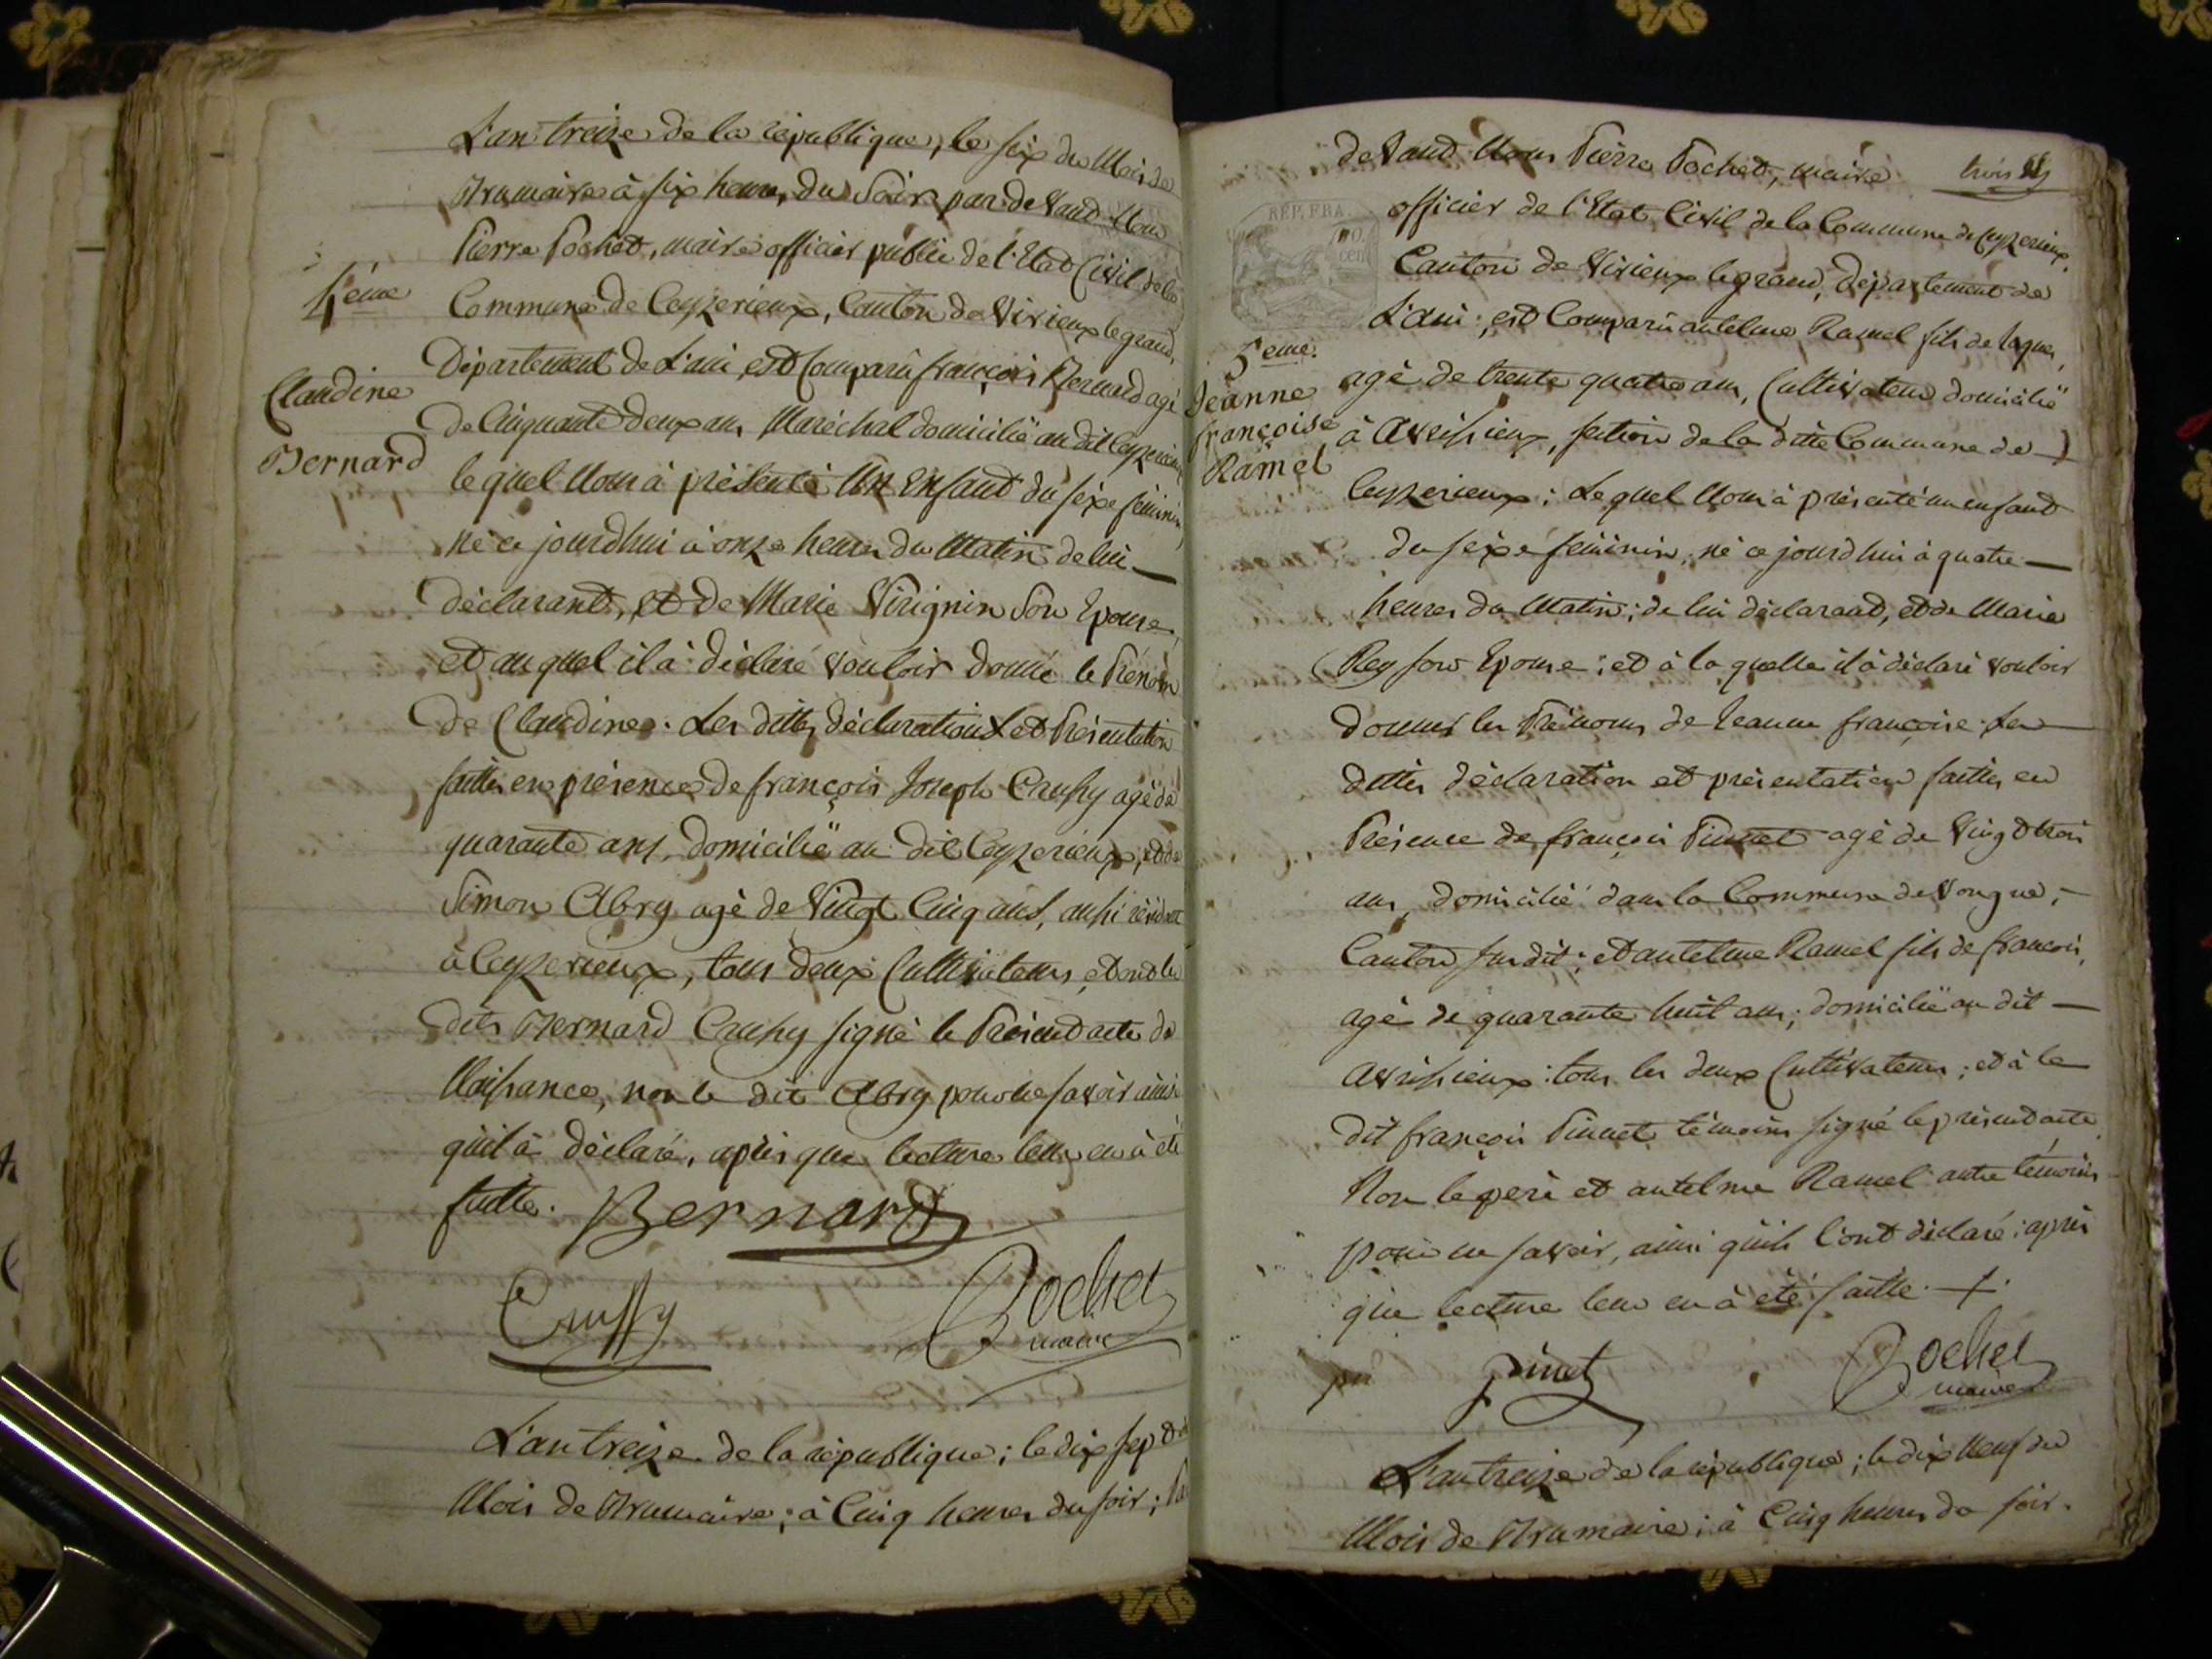 L'an treize de la république, le six du Mois de
Brumaire à six heures du Soir par devand Nous
Pierre Pochet, maire officier public de l'Etat Civil de la
4eme
Commune de Ceyzerieux, Canton de Virieux le grand,
Département de L'ain est Comparû françois Bernard agé
Claudine
Bernard
de Cinquante deux ans Maréchal domicilié au dit Ceyzerieux
le quel Nous à présenté Un Enfant du sexe féminin,
né ce jourdhui à onze heures du Matin de lui
déclarant, et de Marie Virignin Son Epouse,
et au quel il à déclaré vouloir donné le Prénom
de Claudine. Les dittes déclarations et Présentation
faittes en présence de françois Joseph Crussy agé de
quarante ans, domicilié au dit Ceyzerieux, et de
Simon Abry agé de Vingt Cinq ans, aussi résidant
à Ceyzerieux, tous deux Cultivateurs, et ont les
dits Bernard Crussy signé le Présend acte de
Naissance, non le dit Abry pour ne savoir ainsi
quil à déclaré, après que lecture leur en à été
faitte. Bernard
Crussy
Pochet
maire
L'an treize de la république; le dix sept du
Mois de Brumaire; à Cinq heures du soir; Par
devand Nous Pierre Pochet, maire
trois
REP. FRA.
officier de l'Etat Civil de la Commune de Ceyzerieux,
Canton de Virieux le grand, Département de
L'ain; est Comparû antelme Ramel fils de Jaques,
5eme.
Jeanne
françoise
Ramel
agé de trente quatre ans, Cultivateur domicilié
à Avrissieux, section de la ditte Commune de
Ceyzerieux; Le quel Nous à présenté un enfand
du sexe féminin, né ce jourdhui à quatre
heures du Matin; de lui déclarand, et de Marie
Rey son Epouse; et à la quelle il à déclaré vouloir
donner les Prénoms de Jeanne françoise. Les
dittes déclaration et présentation faittes en
Présence de françois Pinnet agé de Vingt trois
ans, domicilié dans la Commune de Vongne,
Canton susdit; et antelme Ramel fils de francois,
agé de quarante huit ans; domicilié au dit
Avrissieux; tous les deux Cultivateurs; et à le
dit françois Pinnet témoins signé le présend acte,
Non le père et antelme Ramel autre témoins
pour ne savoir, ainsi quils l'ont déclaré: après
que lecture leur en à été faitte.
pinet
Pochet
maire
L'an treize de la république; le dix Neuf du
Mois de Brumaire; à Cinq heures du soir.